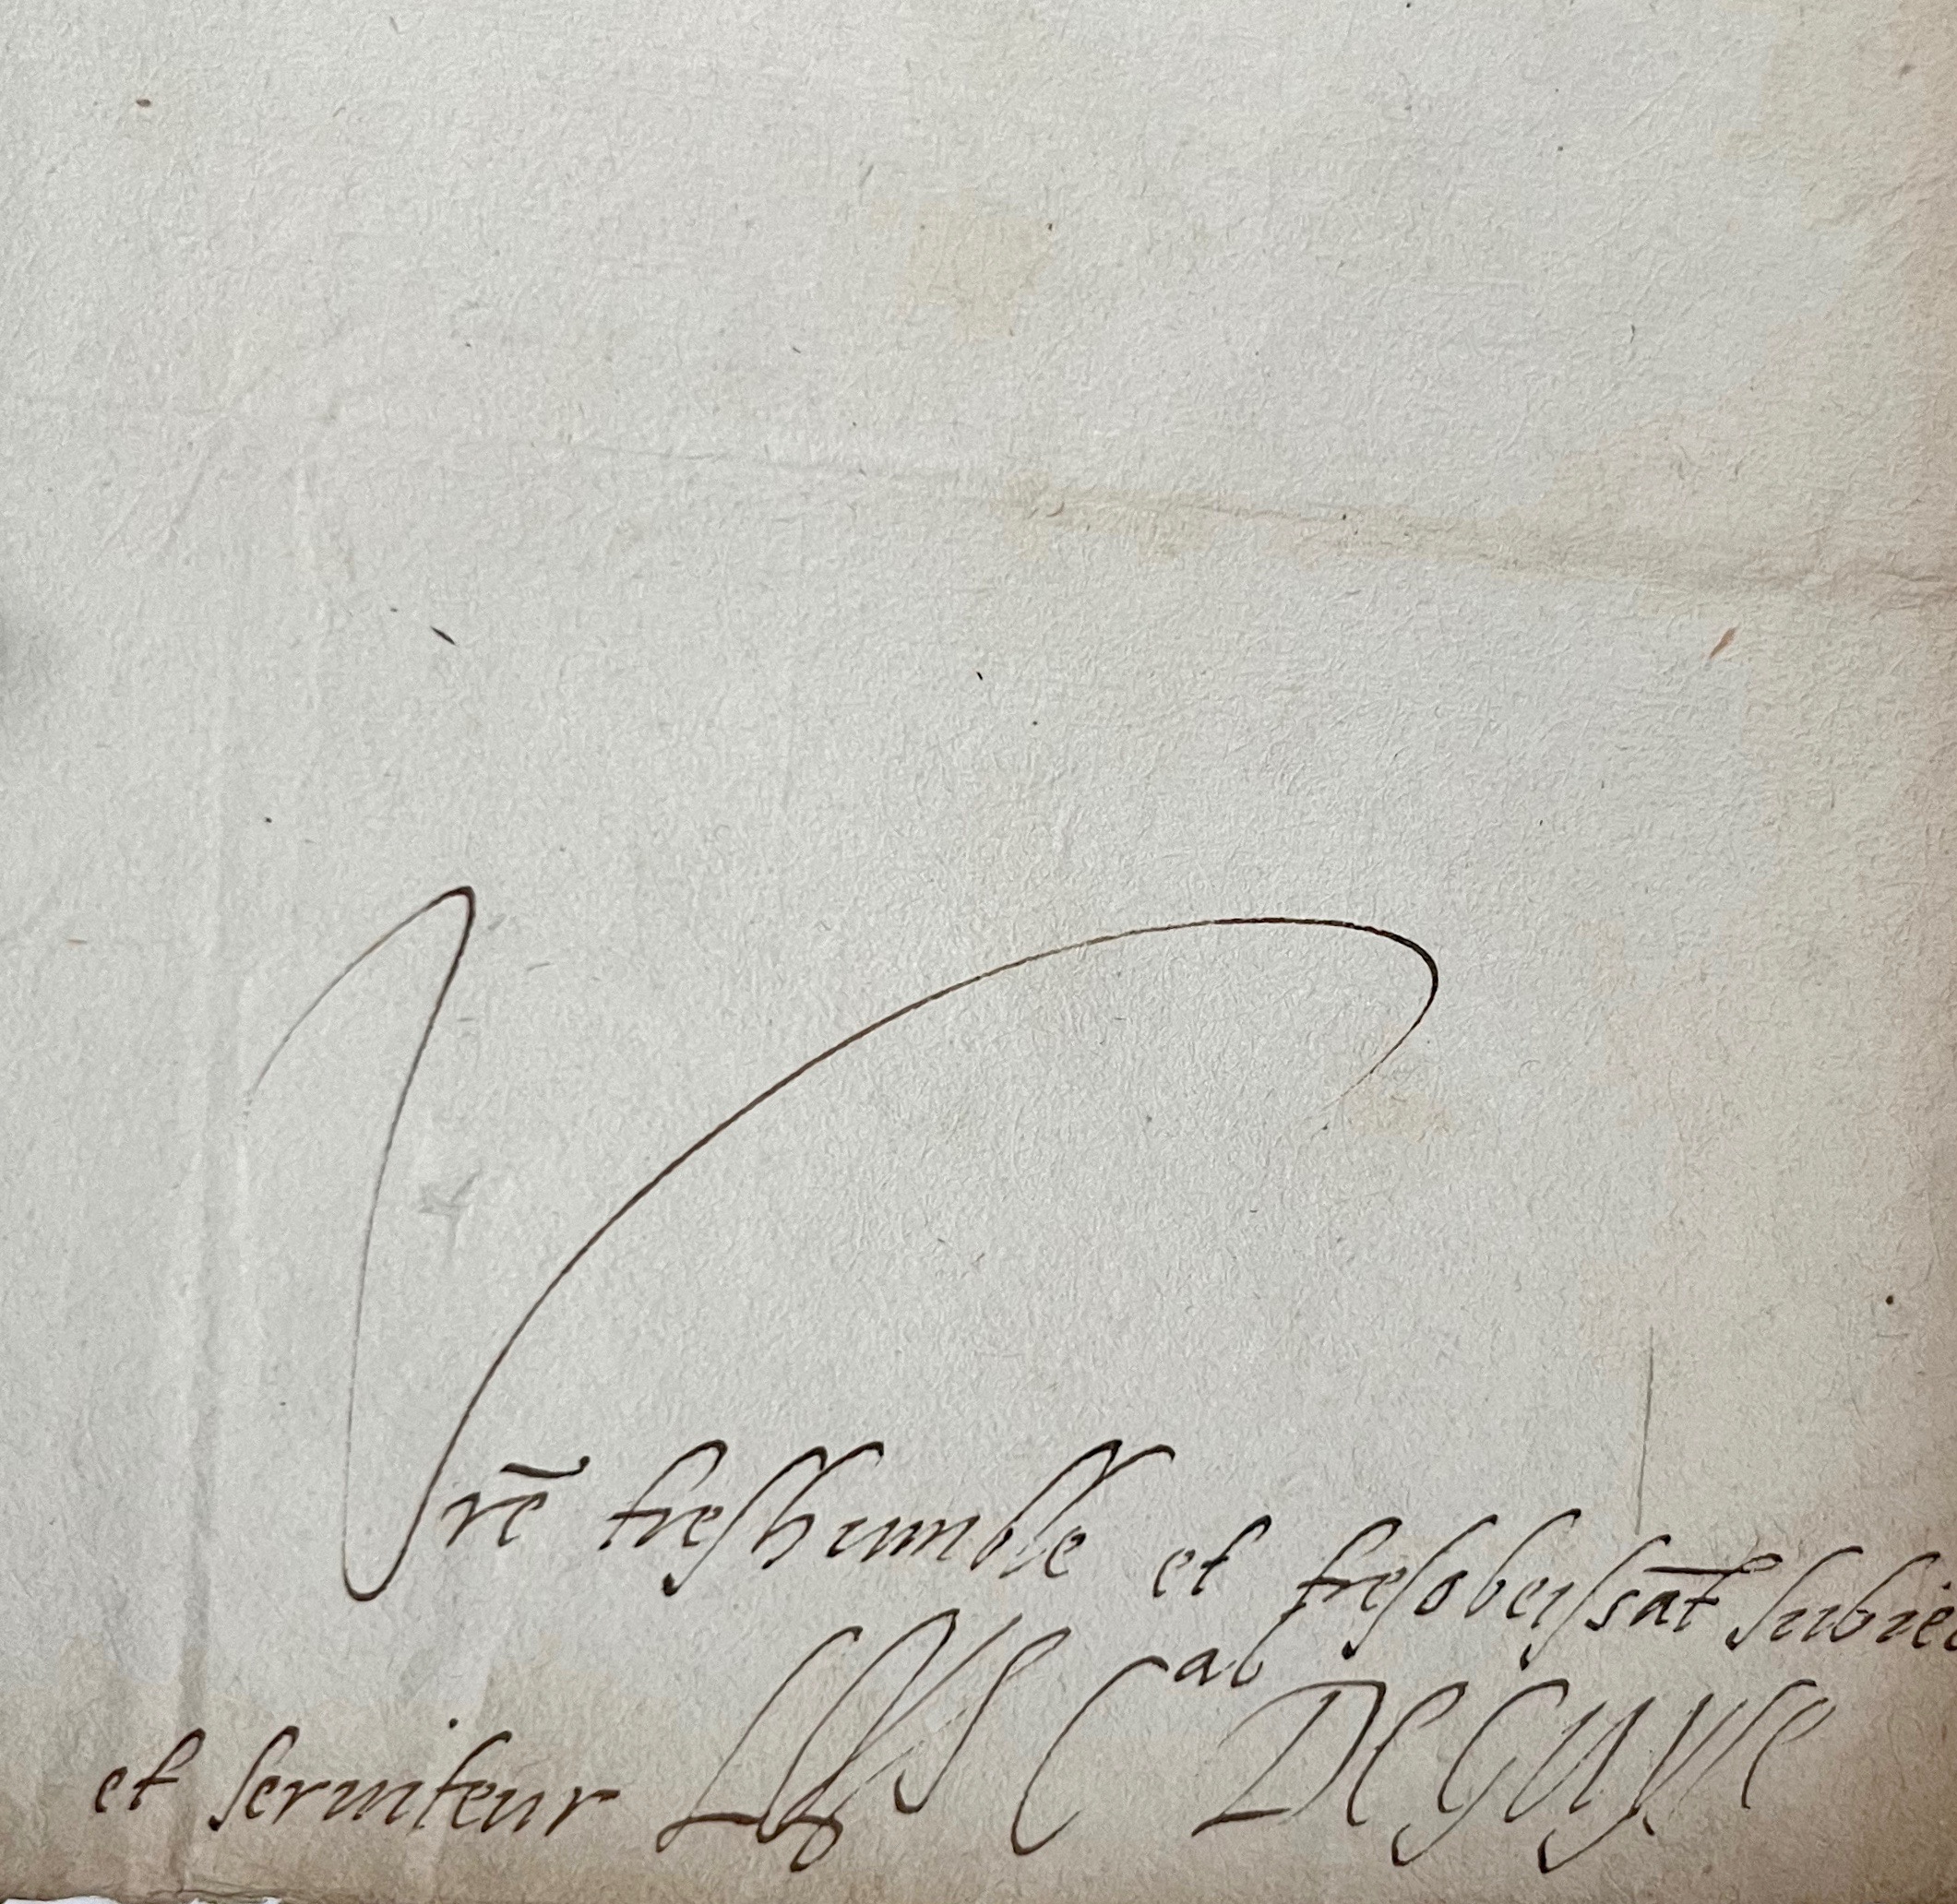 Vrē treshumble et tresobeissāt subiec
et seruiteur Loys Cal DE GUYSE